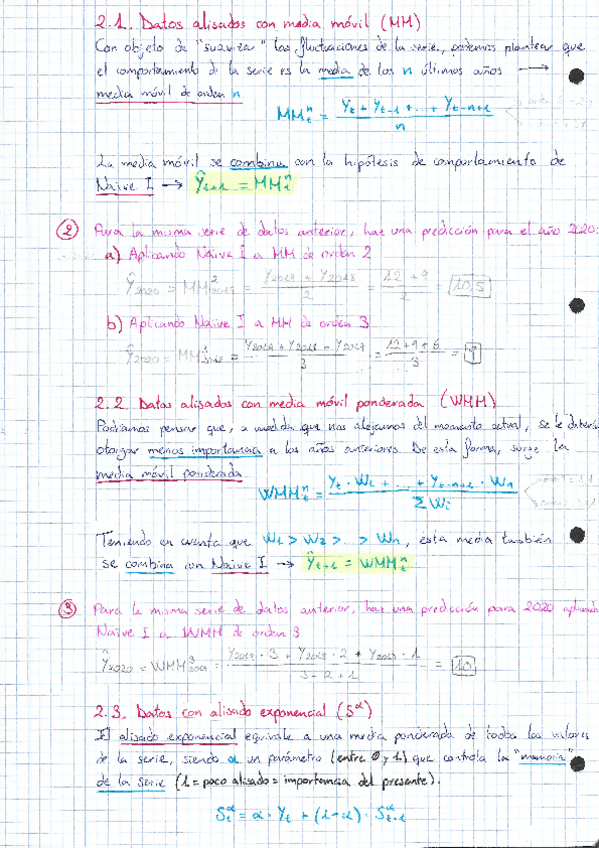 2.1. Datos alisados con media móvil (MM)
Con objeto de "suavizar" las fluctuaciones de la serie, podemos plantear que
el comportamiento de la serie es la media de los n últimos años →
media móvil de orden n
MMₜⁿ = (Yₜ + Yₜ₋₁ + ... + Yₜ₋ₙ₊₁) / n
La media móvil se combina con la hipótesis de comportamiento de
Naive I → Ŷₜ₊₁ = MMₜⁿ
② Para la misma serie de datos anterior, haz una predicción para el año 2020:
a) Aplicando Naive I a MM de orden 2
Ŷ₂₀₂₀ = MM²₂₀₁₉ = (Y₂₀₁₉ + Y₂₀₁₈) / 2 = (12 + 9) / 2 = 10,5
b) Aplicando Naive I a MM de orden 3
Ŷ₂₀₂₀ = MM³₂₀₁₉ = / 3 = (12 + 9 + 6) / 3 = 9
2.2. Datos alisados con media móvil ponderada (WMM)
Podríamos pensar que, a medida que nos alejamos del momento actual, se le debería
otorgar menos importancia a los años anteriores. De esta forma, surge la
media móvil ponderada.
WMMₜⁿ = (Yₜ · W₁ + ... + Yₜ₋ₙ₊₁ · Wₙ) / ΣWᵢ
Teniendo en cuenta que W₁ > W₂ > ... > Wₙ, esta media también
se combina con Naive I → Ŷₜ₊₁ = WMMₜⁿ
③ Para la misma serie de datos anterior, haz una predicción para 2020 aplicando
Naive I a WMM de orden 3
Ŷ₂₀₂₀ = WMM³₂₀₁₉ = / 3 + 2 + 1 = 10
2.3. Datos con alisado exponencial (Sᵅ)
El alisado exponencial equivale a una media ponderada de todos los valores
de la serie, siendo α un parámetro (entre 0 y 1) que controla la "memoria"
de la serie (1 = poco alisado = importancia del presente).
Sₜᵅ = α · Yₜ + (1-α) · Sₜ₋₁ᵅ